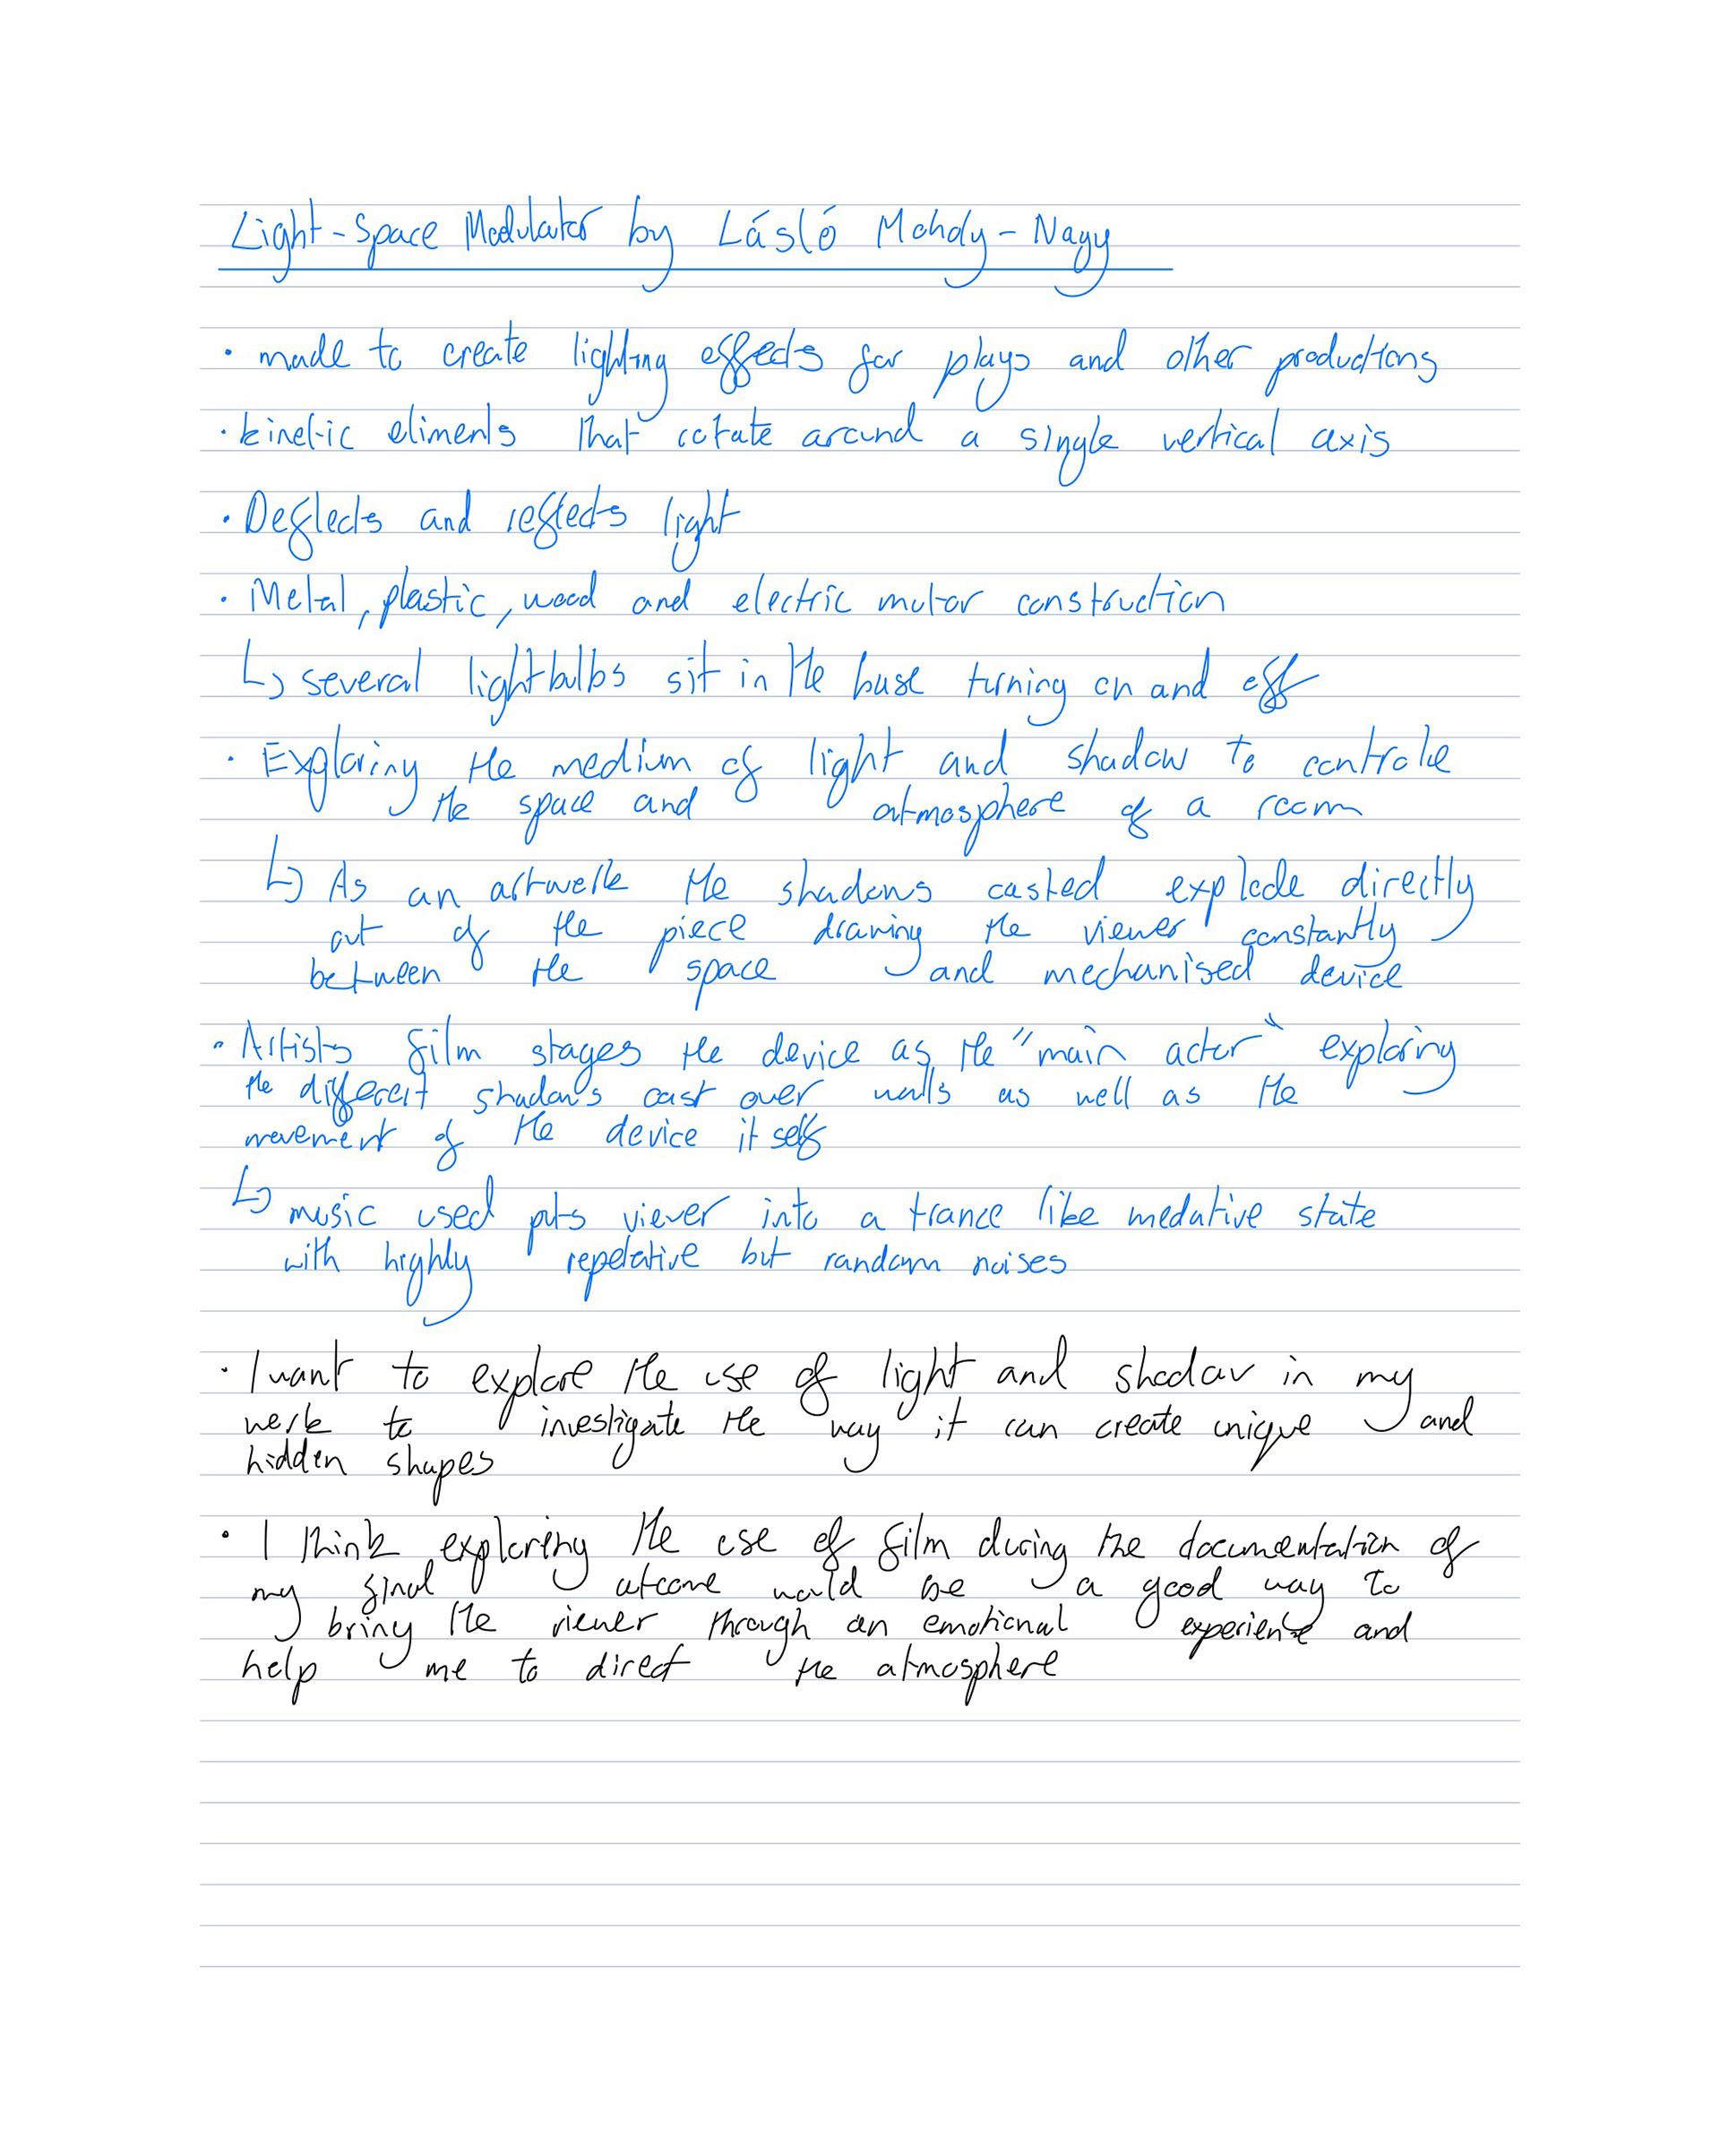 Light-Space Modulator by László Mohdy-Nagy
· made to create lighting effects for plays and other productions
· kinetic eliments that rotate around a single vertical axis
· Deflects and reflects light
· Metal, plastic, wood and electric motor construction
↳ several lightbulbs sit in the base turning on and off
· Exploring the medium of light and shadow to controle
the space and atmosphere of a room
↳ As an artwork the shadows casted explode directly
out of the piece drawing the viewer constantly
between the space and mechanised device
· Artists film stages the device as the "main actor" exploring
the different shadows cast over walls as well as the
movement of the device itself
↳ music used puts viewer into a trance like medative state
with highly repetative but random noises
· I want to explore the use of light and shadow in my
work to investigate the way it can create unique and
hidden shapes
· I think exploring the use of film during the documentation of
my final outcome would be a good way to
bring the viewer through an emotional experience and
help me to direct the atmosphere